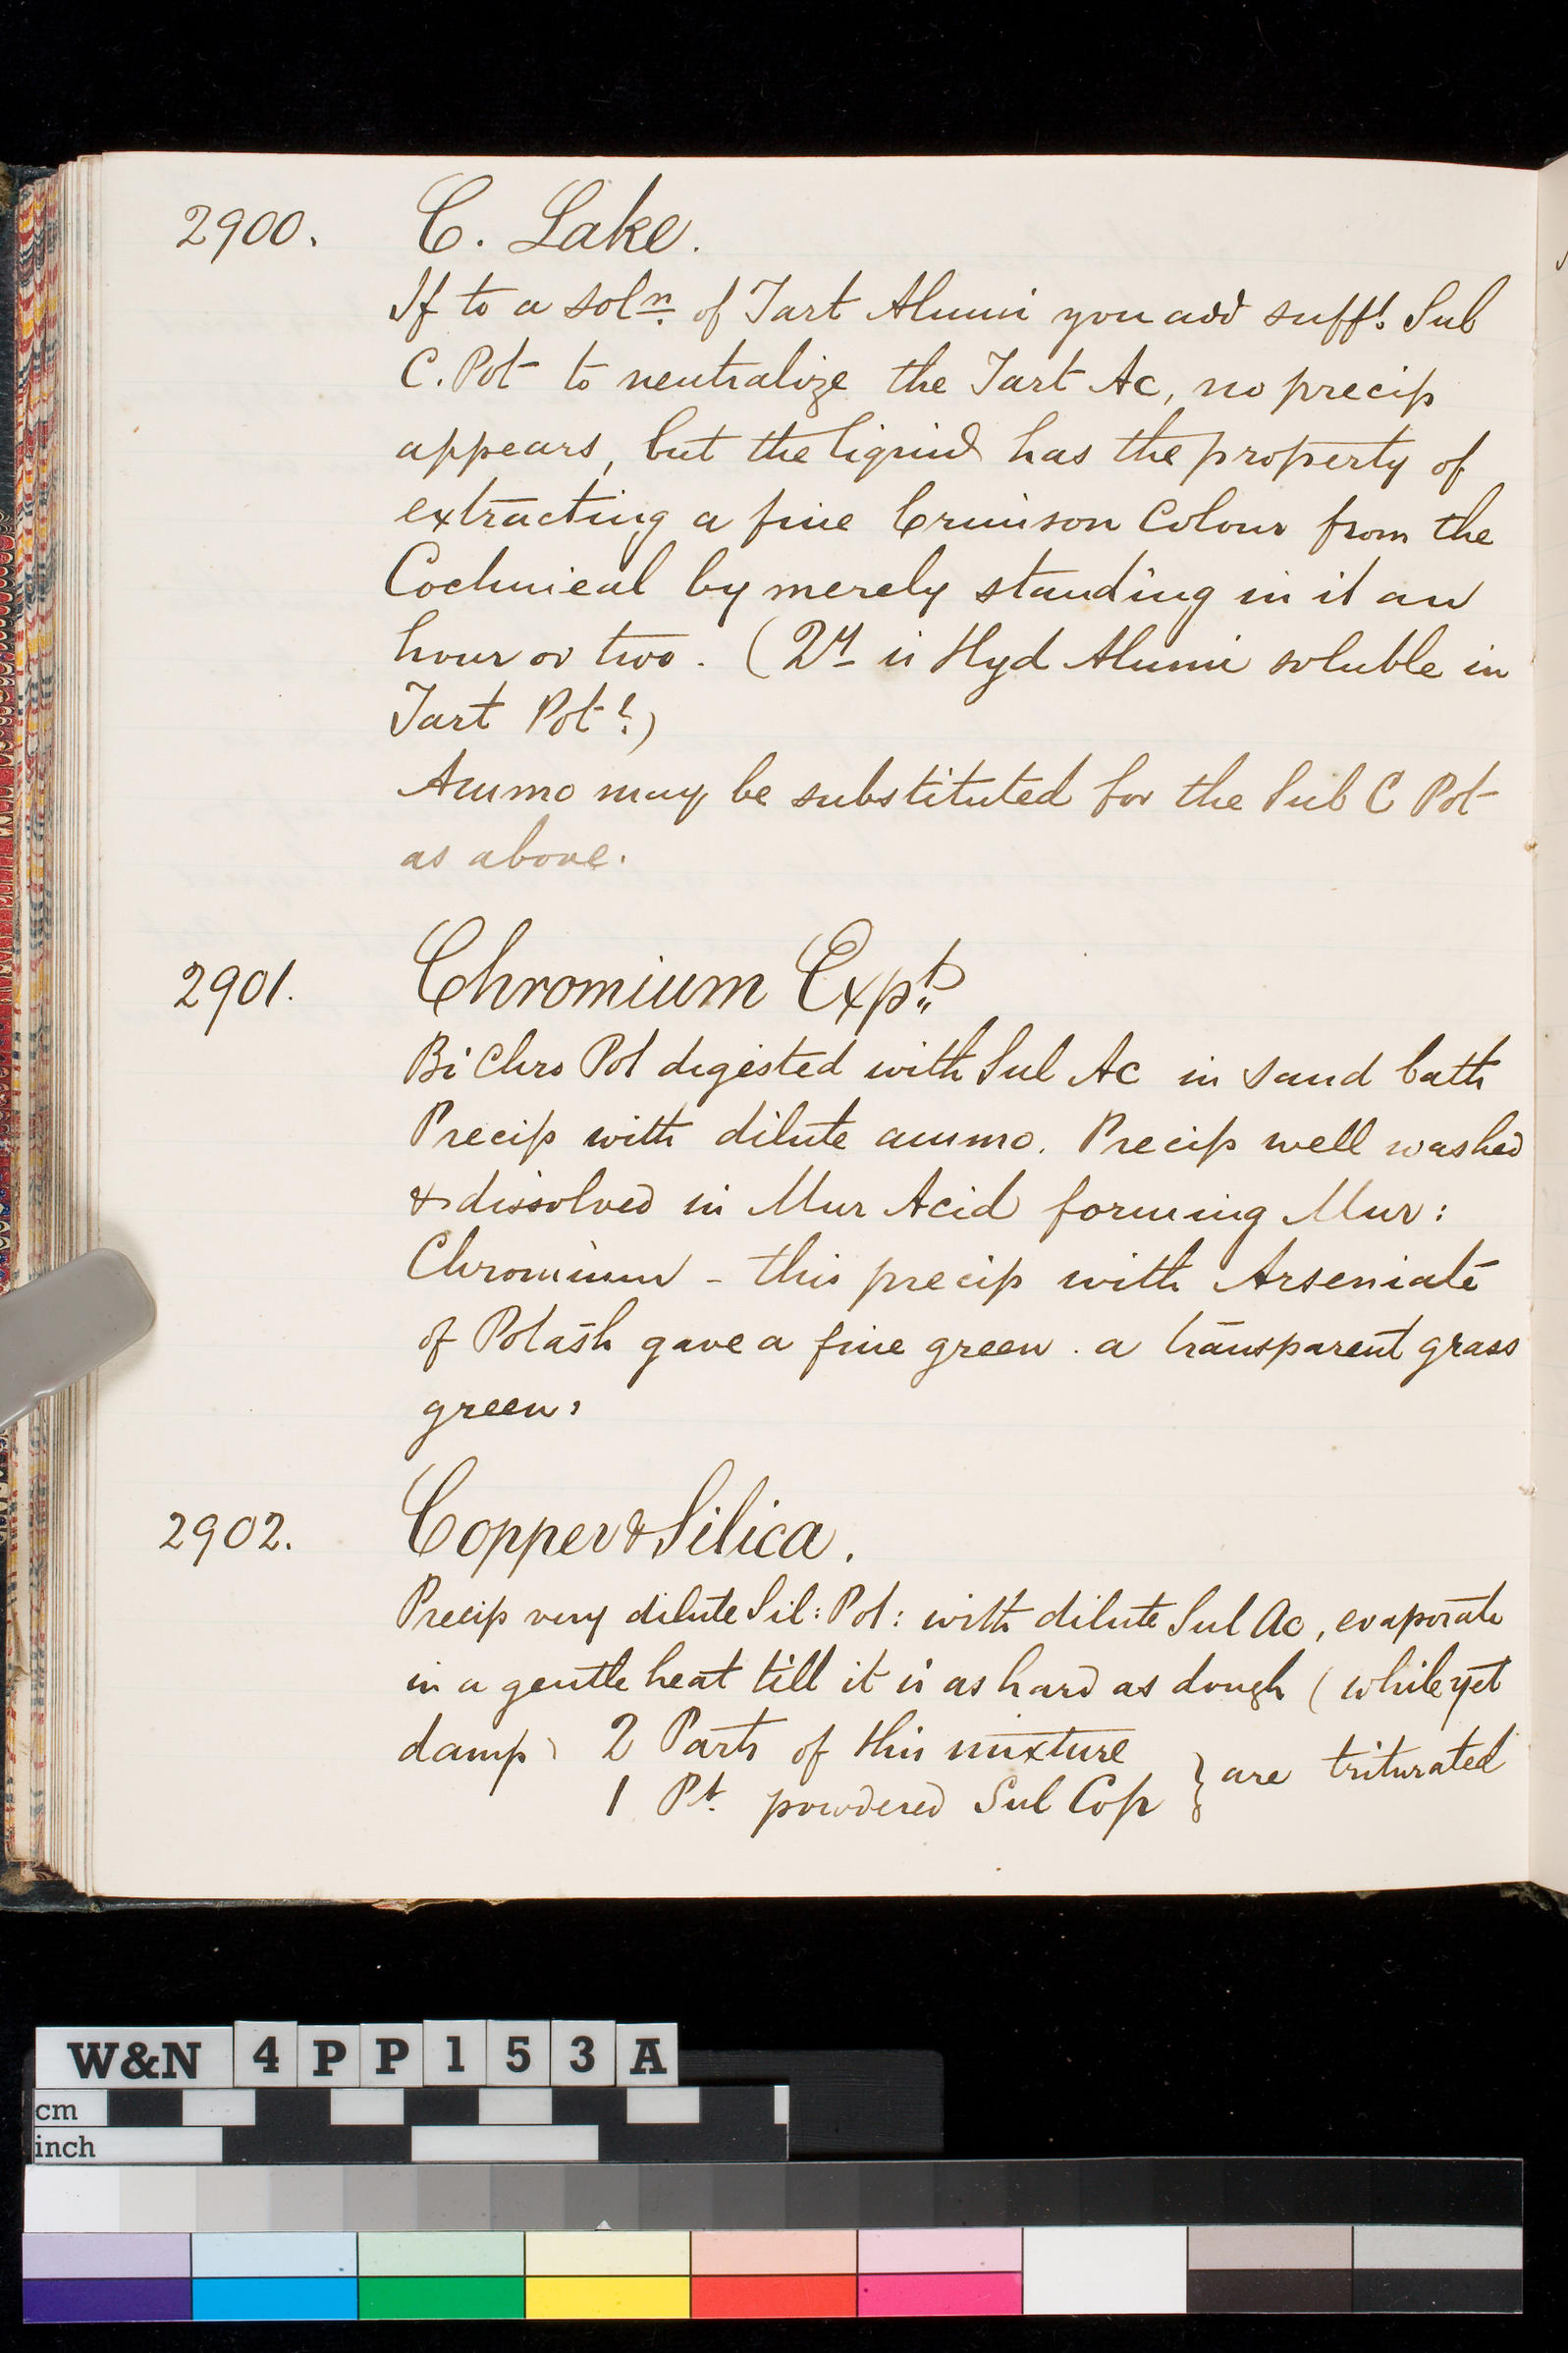 2900. C. Lake.
If to a soln. of Tart Alumi you add sufft. Sub
C. Pot to neutralize the Tart Ac, no precip
appears, but the liquid has the property of
extracting a fine Crimson Colour from the
Cochnieal by merely standing in it an
hour or two. (Qy is Hyd Alumi soluble in
Tart Pot?)
Ammo may be substituted for the Sub C Pot
as above.
2901. Chromium Expts
Bi Chro Pot digested with Sul Ac in sand bath
Precip with dilute ammo. Precip well washed
& dissolved in Mur Acid forming Mur:
Chromium - this precip with Arseniate
of Potash gave a fine green. a transparent grass
green.
2902. Copper & Silica.
Precip very dilute Sil: Pot: with dilute Sul Ac, evaporate
in a gentle heat till it is as hard as dough (while yet
damp) 2 Parts of this mixture
1 Pt. powdered Sul Cop } are triturated
W&N 4PP153A
cm
inch